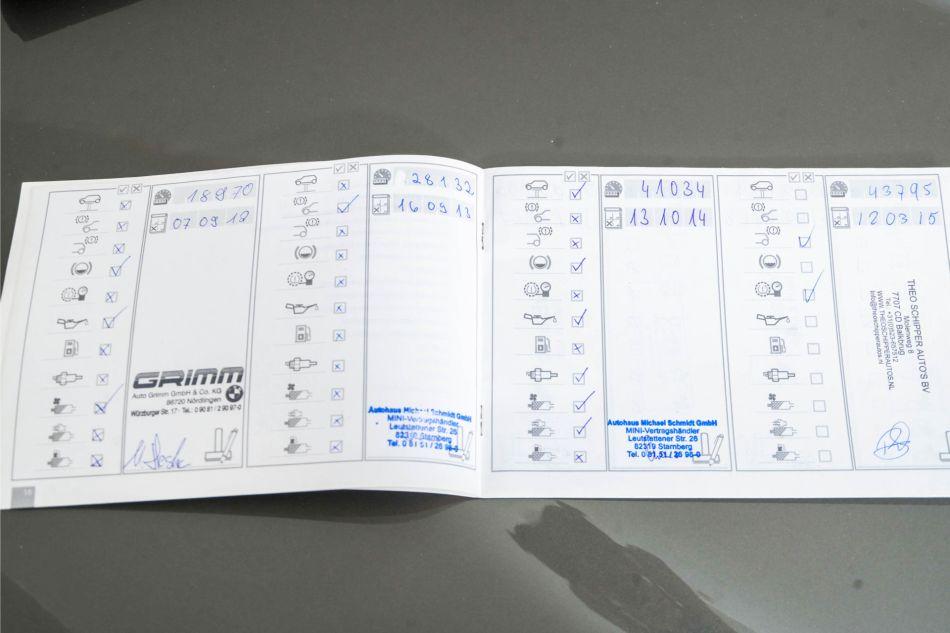 18970
07 09 12
GRIMM
Auto Grimm GmbH & Co. KG
86720 Nördlingen
Würzburger Str. 17 · Tel.: 0 90 81 / 2 90 97-0
28132
16 09 13
Autohaus Michael Schmidt GmbH
MINI-Vertragshändler
Leutstettener Str. 26
82319 Starnberg
Tel. 0 81 51 / 26 96-0
41034
13 10 14
Autohaus Michael Schmidt GmbH
MINI-Vertragshändler
Leutstettener Str. 26
82319 Starnberg
Tel. 0 81 51 / 26 96-0
43795
12 03 15
THEO SCHIPPER AUTO'S BV
Molenweg 8
7707 CD Balkbrug
WWW.THEOSCHIPPERAUTOS.NL
info@theoschipperautos.nl
16